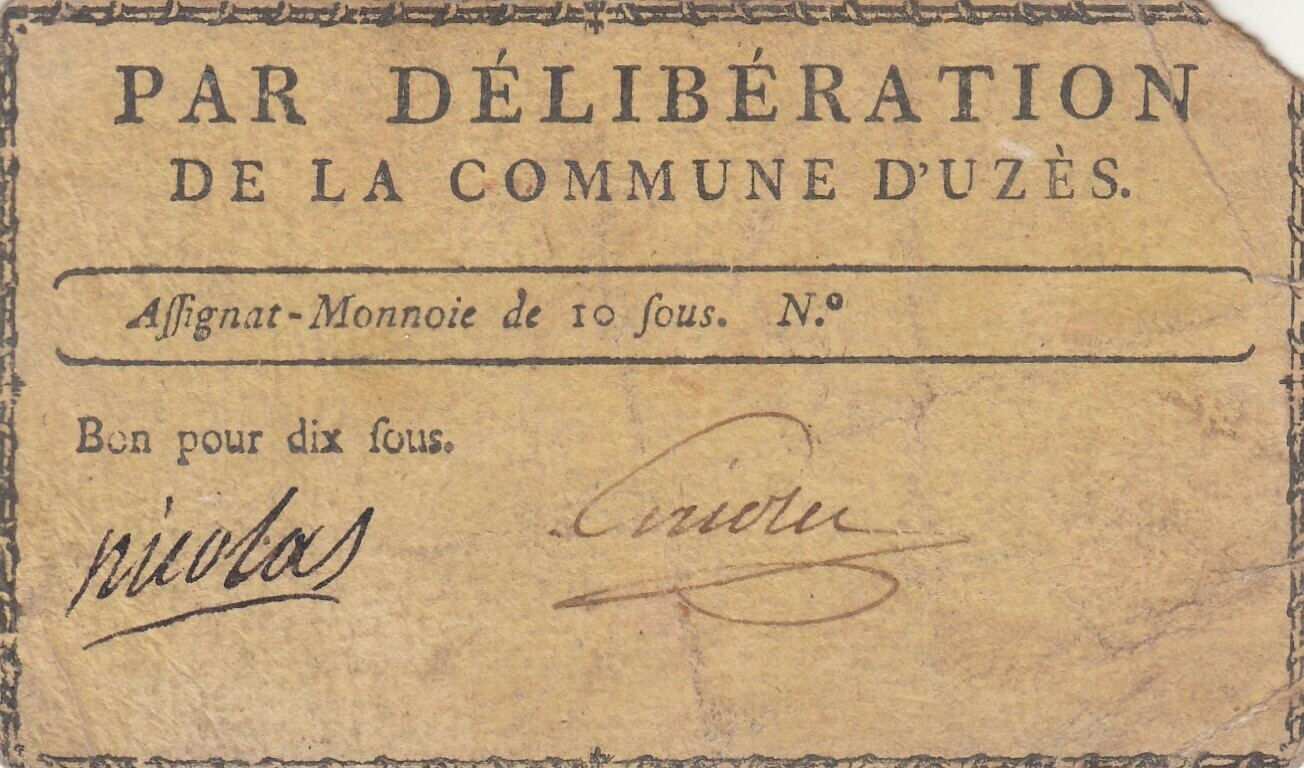 PAR DÉLIBÉRATION
DE LA COMMUNE D'UZÈS.
Aſſignat-Monnoie de 10 ſous. N.º
Bon pour dix ſous.
nicolas